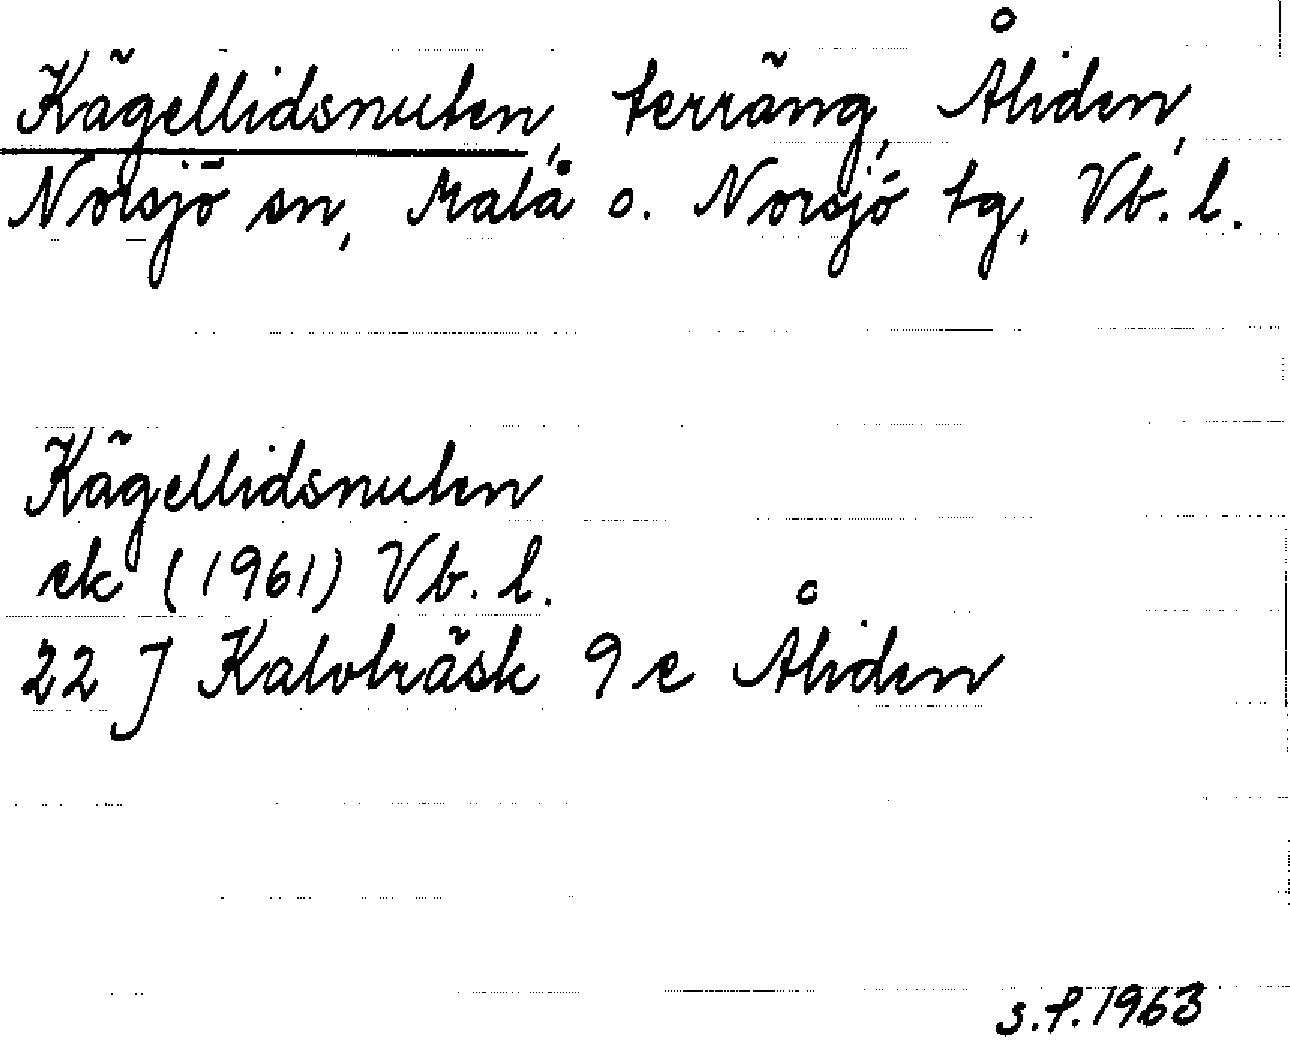 Kägellidsnuten, terräng, Åliden,
Norsjö sn, Malå o. Norsjö tg, Vb. l.
Kägellidsnuten
ek (1961) Vb. l.
22 J Kalvträsk 9 e Åliden
S.P. 1963